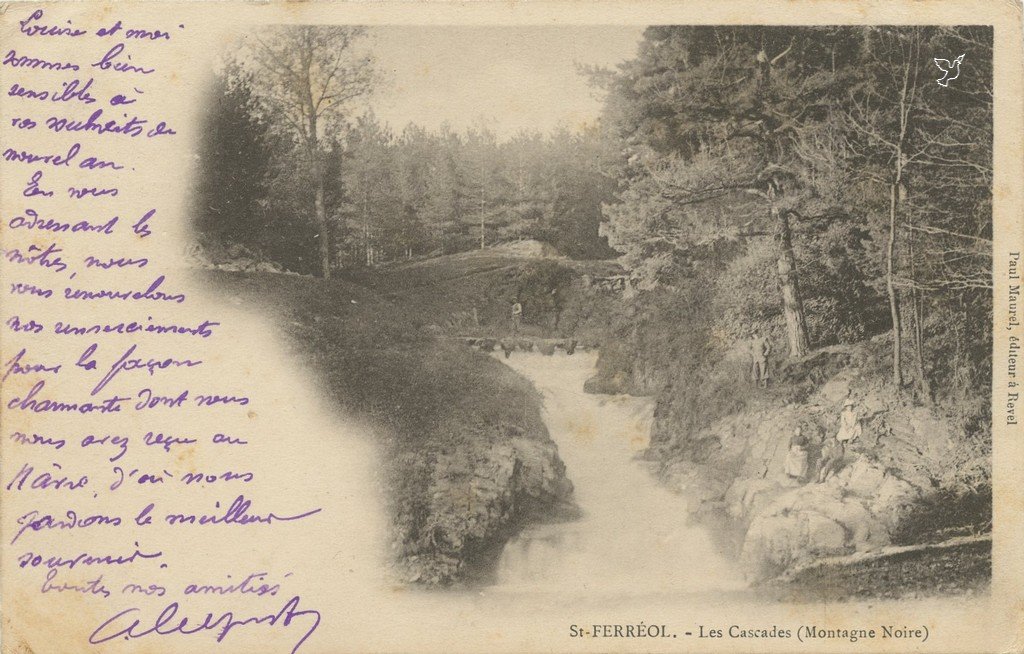 Louise et moi
sommes bien
sensibles à
vos souhaits du
nouvel an.
En vous
adressant les
nôtres, nous
vous renouvelons
nos remerciements
pour la façon
charmante dont vous
nous avez reçu au
d'où nous
gardons le meilleur
souvenir
Toutes nos amitiés
St-FERRÉOL. - Les Cascades (Montagne Noire)
Paul Maurel, éditeur à Revel